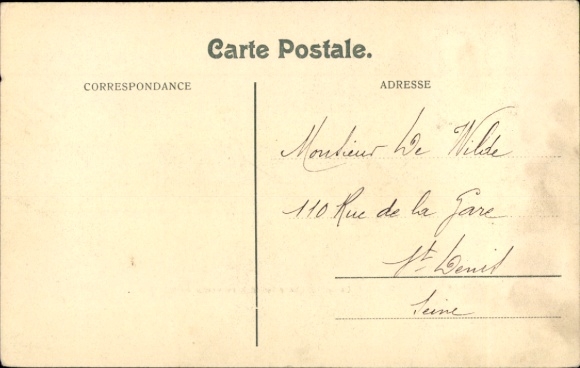 Carte Postale.
CORRESPONDANCE
ADRESSE
Monsieur De Wilde
110 Rue de la Gare
St Denis
Seine